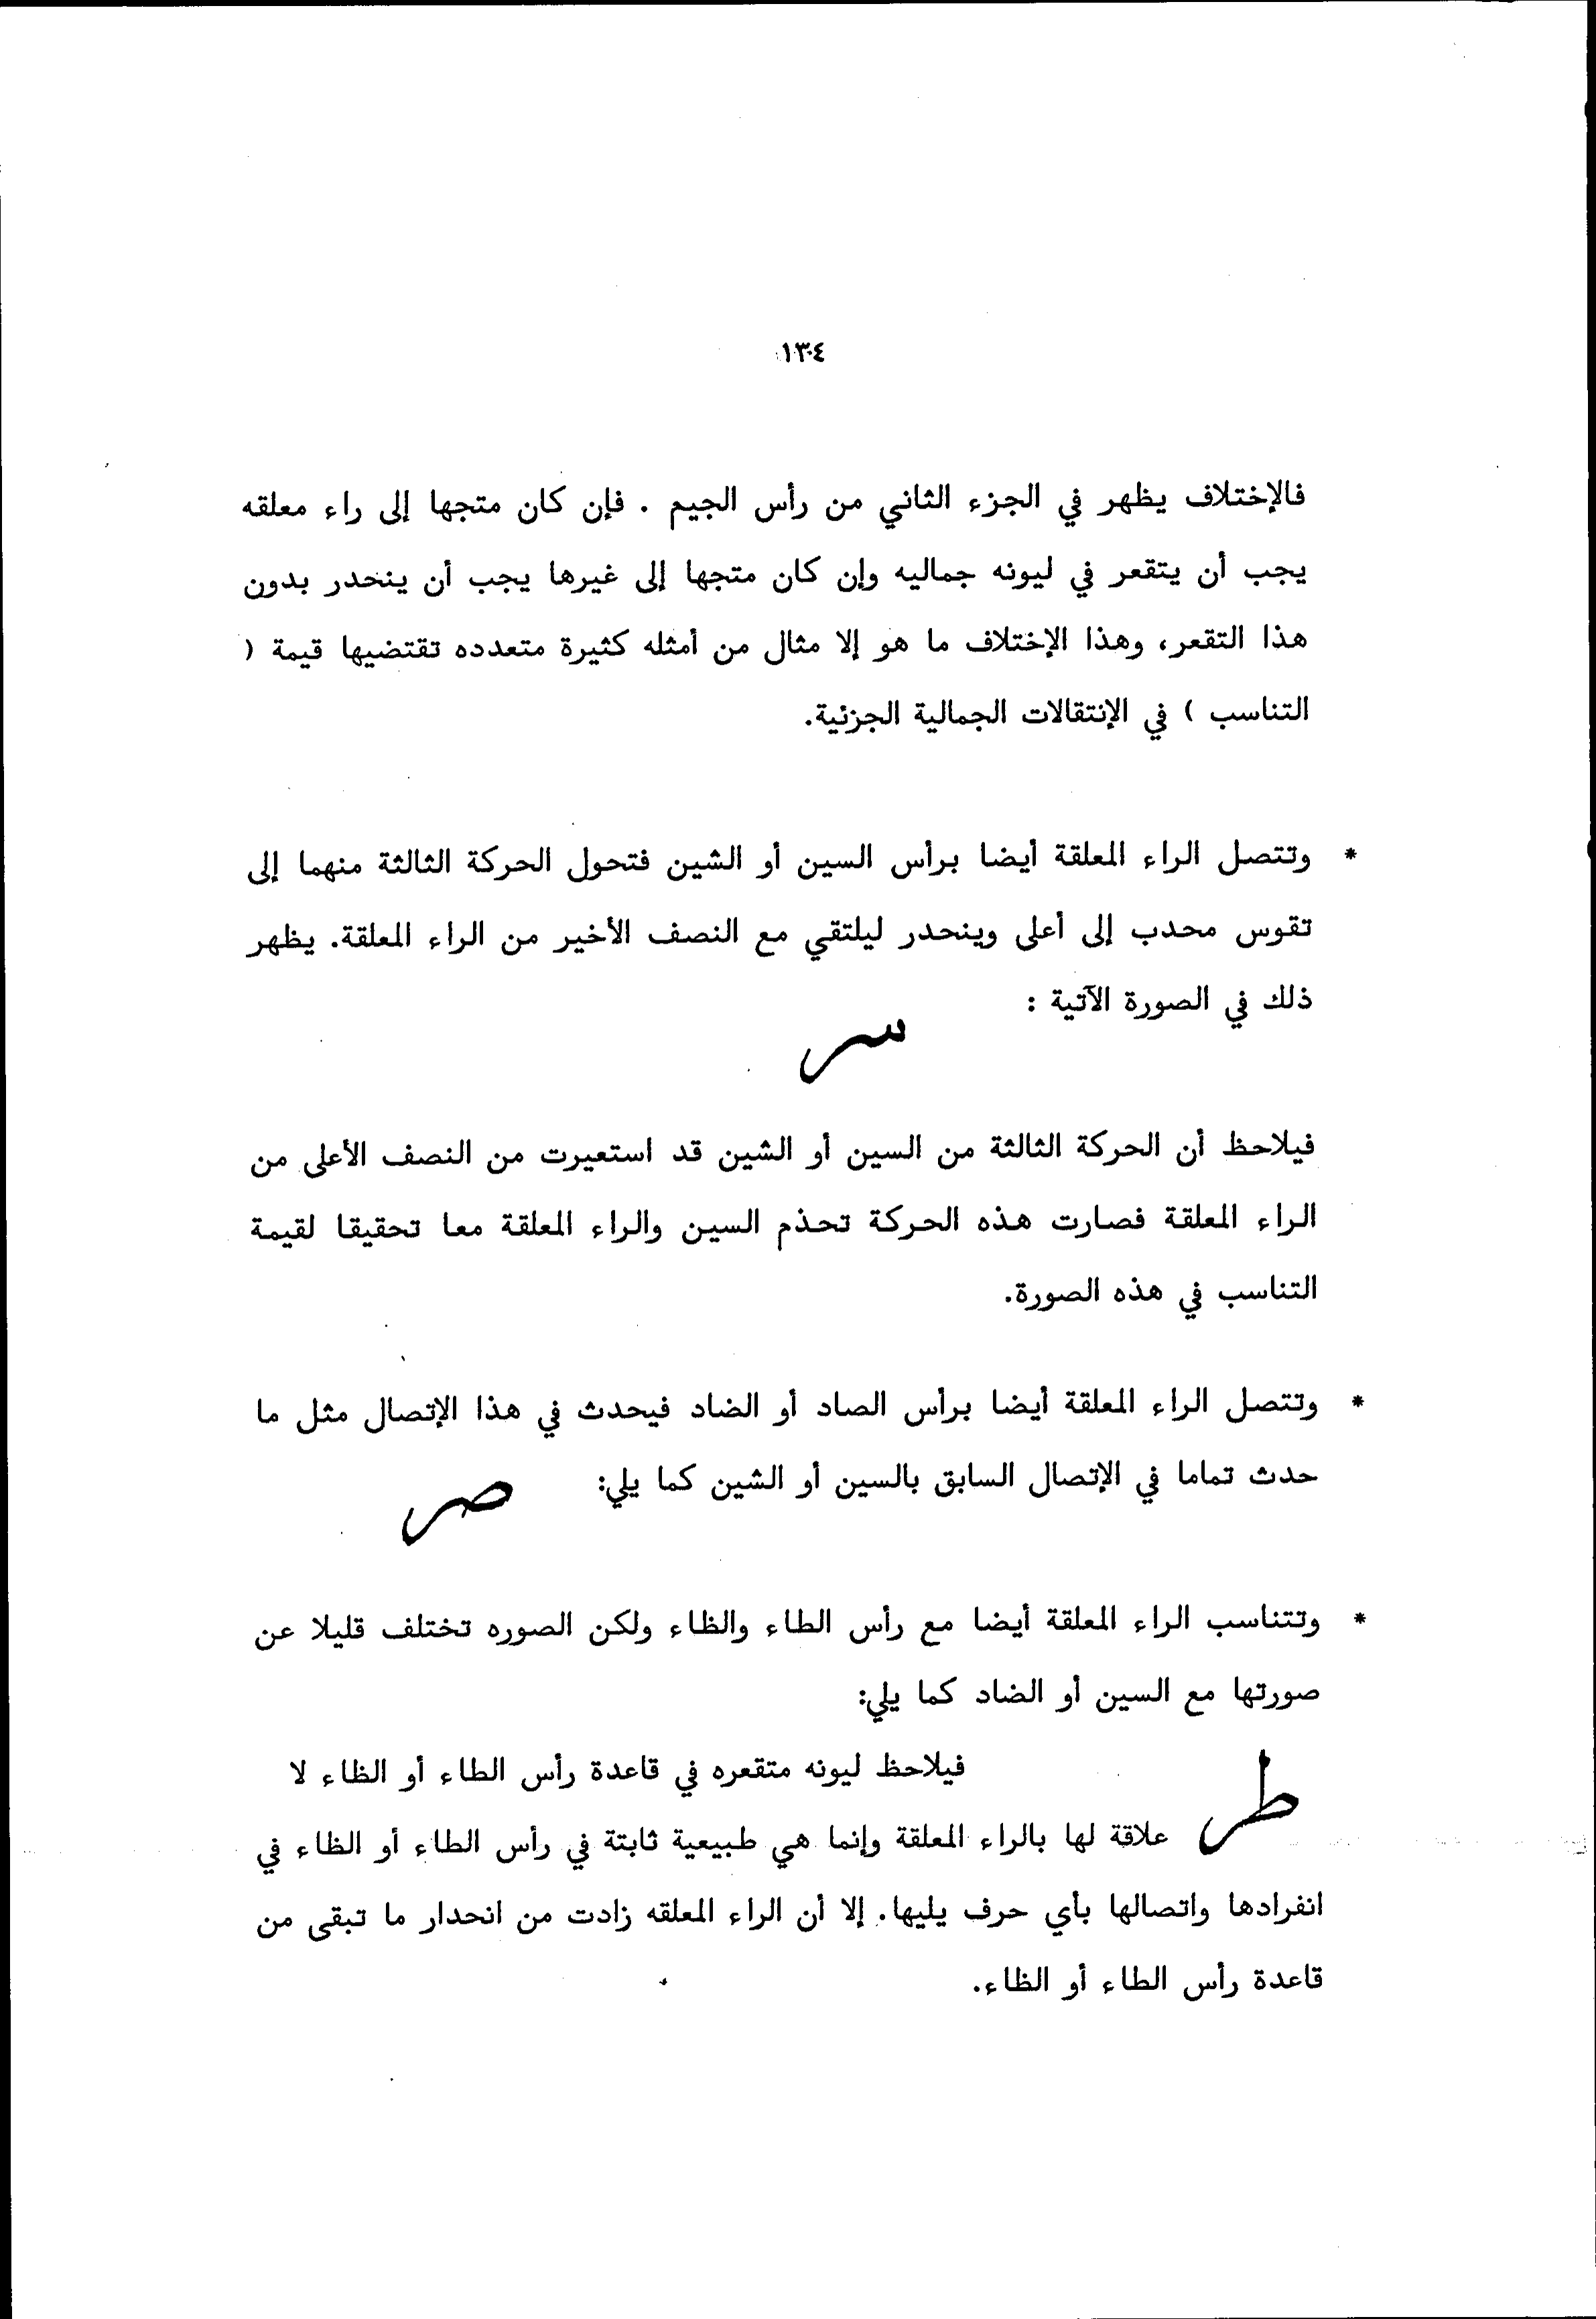 ١٣٠٤
فالإختلاف يظهر في الجزء الثاني من رأس الجيم . فإن كان متجها إلى راء معلقه
يجب أن يتقعر في ليونه جماليه وإن كان متجها إلى غيرها يجب أن ينحدر بدون
هذا التقعر، وهذا الإختلاف ما هو إلا مثال من أمثله كثيرة متعدده تقتضيها قيمة (
التناسب ) في الإنتقالات الجمالية الجزئية.
* وتتصل الراء المعلقة أيضا برأس السين أو الشين فتحول الحركة الثالثة منهما إلى
تقوس محدب إلى أعلى وينحدر ليلتقي مع النصف الأخير من الراء المعلقة. يظهر
ذلك في الصورة الآتية :
سر
فيلاحظ أن الحركة الثالثة من السين أو الشين قد استعيرت من النصف الأعلى من
الراء المعلقة فصارت هذه الحركة تحذم السين والراء المعلقة معا تحقيقا لقيمة
التناسب في هذه الصورة.
* وتتصل الراء المعلقة أيضا برأس الصاد أو الضاد فيحدث في هذا الإتصال مثل ما
حدث تماما في الإتصال السابق بالسين أو الشين كما يلي:
صر
* وتتناسب الراء المعلقة أيضا مع رأس الطاء والظاء ولكن الصوره تختلف قليلا عن
صورتها مع السين أو الضاد كما يلي:
فيلاحظ ليونه متقعره في قاعدة رأس الطاء أو الظاء لا
طر
علاقة لها بالراء المعلقة وإنما هي طبيعية ثابتة في رأس الطاء أو الظاء في
انفرادها واتصالها بأي حرف يليها. إلا أن الراء المعلقه زادت من انحدار ما تبقى من
قاعدة رأس الطاء أو الظاء.